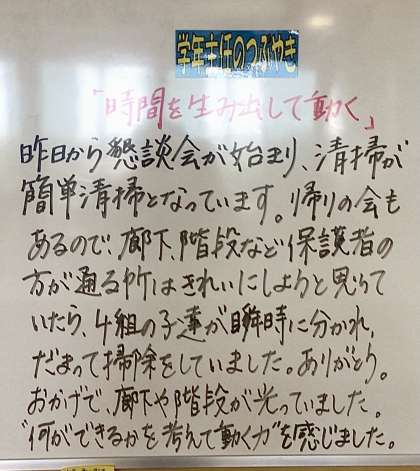 学年主任のつぶやき
「時間を生み出して動く」
昨日から懇談会が始まり、清掃が
簡単清掃となっています。帰りの会も
あるので、廊下、階段など保護者の
方が通る所はきれいにしようと思って
いたら、4組の子達が瞬時に分かれ、
だまって掃除をしていました。ありがとう。
おかげで、廊下や階段が光っていました。
"何ができるかを考えて動く力"を感じました。